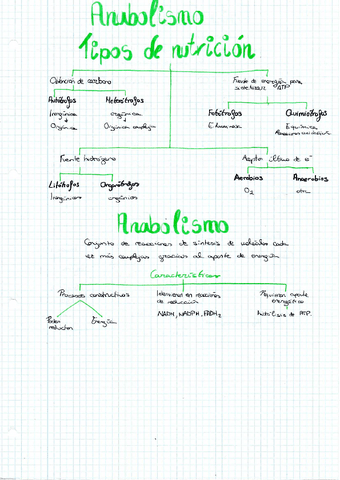 Anabolismo
Tipos de nutrición
Obtención de carbono
Fuente de energía para
sintetizar ATP
Autótrofos
Heterótrofos
Inorgánica
Orgánica
orgánica
Orgánica compleja
Fotótrofos
Quimiótrofos
E. luminosa
E. química
Fuente hidrógeno
Aceptor último de e⁻
Litótrofos
Organótrofos
Inorgánicos
orgánicos
Aerobios
Anaerobios
O₂
otro
Anabolismo
Conjunto de reacciones de síntesis de moléculas cada
vez más complejas gracias al aporte de energía
Características
Procesos constructivos
Intervienen en reacciones
de reducción
Requieren aporte
energético
Poder
reductor
Energía
NADH, NADPH, FADH₂
Hidrólisis de ATP.